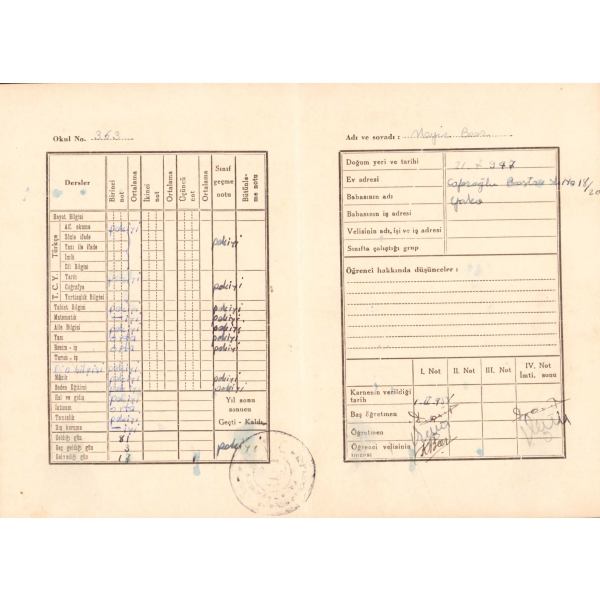 Okul No. 363
Dersler
Birinci not
Ortalama
İkinci not
Ortalama
Üçüncü not
Ortalama
Sınıf geçme notu
Bütünleme notu
Hayat Bilgisi
Türkçe
Alf. okuma pekiyi
Sözle ifade
Yazı ile ifade pekiyi
İmlâ
Dil Bilgisi
T. C. Y.
Tarih pekiyi
Coğrafya pekiyi
Yurttaşlık Bilgisi
Tabiat Bilgisi pekiyi pekiyi
Matematik pekiyi
Aile Bilgisi pekiyi pekiyi
Yazı pekiyi
Resim - iş pekiyi
Tarım - iş
Müzik pekiyi pekiyi
Beden Eğitimi pekiyi pekiyi
Hal ve gidiş pekiyi
İntizam
Temizlik pekiyi
Diş koruma
Geldiği gün 81
Geç geldiği gün 3
Gelmediği gün 1
Yıl sonu sonucu
Geçti - Kaldı
pekiyi
Adı ve soyadı :
Doğum yeri ve tarihi
Ev adresi
Babasının adı
Babasının iş adresi
Velisinin adı, işi ve iş adresi
Sınıfta çalıştığı grup
Öğrenci hakkında düşünceler :
I. Not II. Not III. Not IV. Not İmti. sonu
Karnesinin verildiği tarih
Baş öğretmen
Öğretmen
Öğrenci velisinin imzası